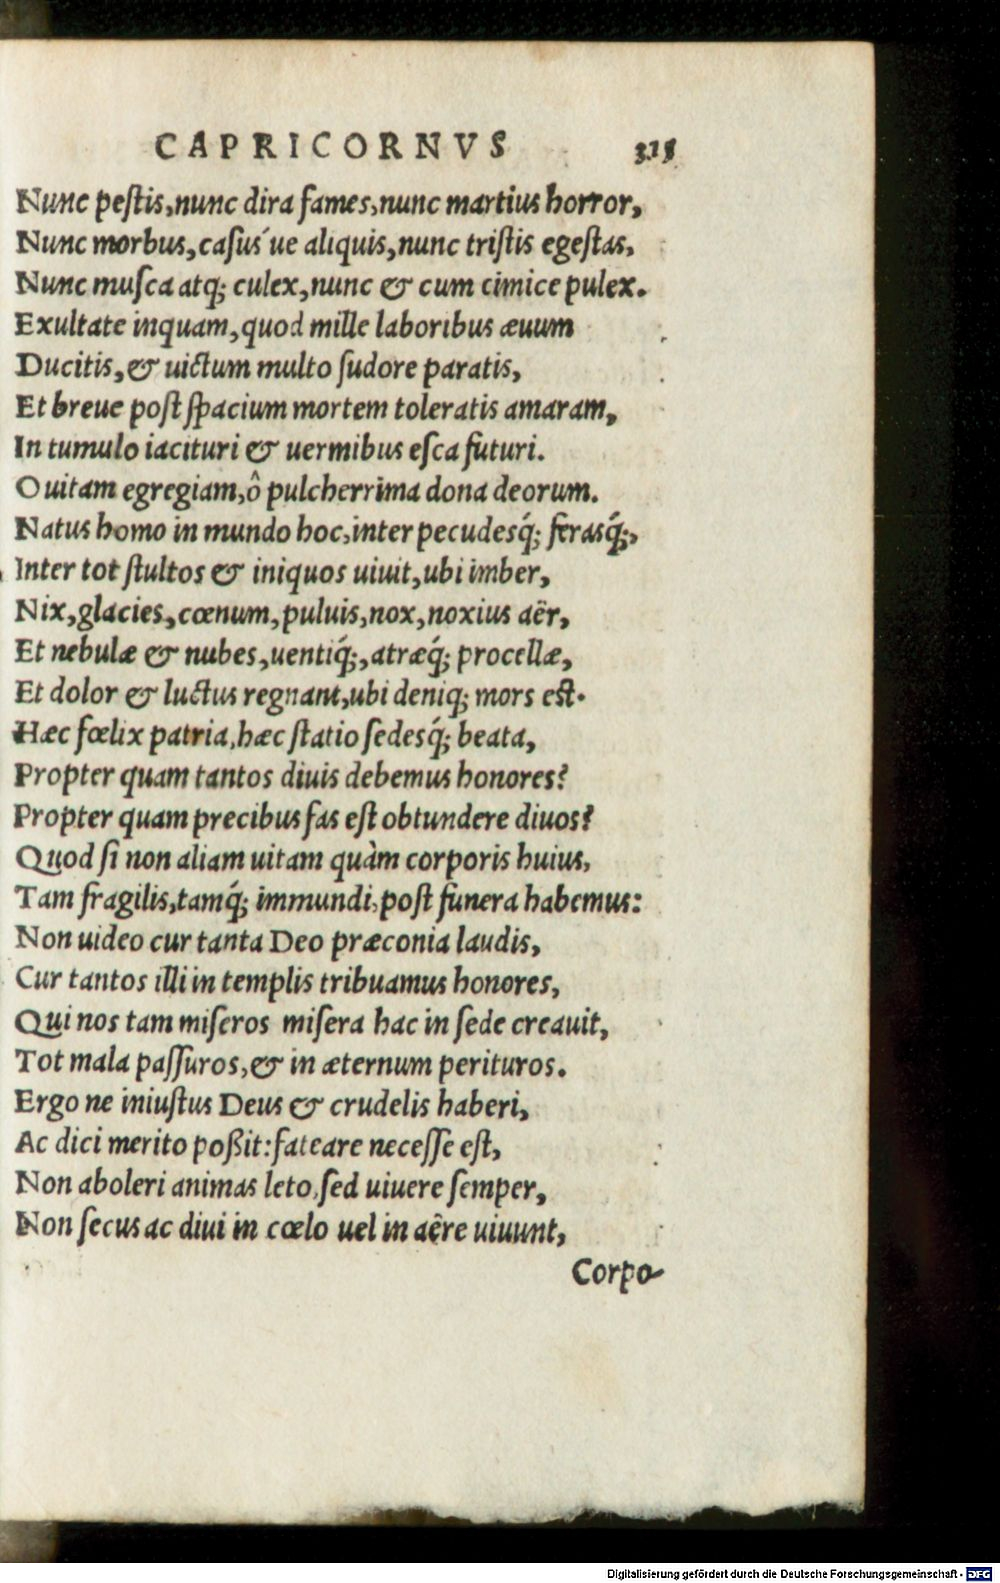 CAPRICORNVS 315
Nunc peſtis,nunc dira fames,nunc martius horror,
Nunc morbus,caſus´ue aliquis,nunc triſtis egeſtas,
Nunc muſca atq; culex,nunc & cum cimice pulex.
Exultate inquam,quod mille laboribus æuum
Ducitis,& uictum multo ſudore paratis,
Et breue poſt ſpacium mortem toleratis amaram,
In tumulo iacituri & uermibus eſca futuri.
O uitam egregiam,ô pulcherrima dona deorum.
Natus homo in mundo hoc,inter pecudesq́; ferasq́;,
Inter tot ſtultos & iniquos uiuit,ubi imber,
Nix,glacies,cœnum,puluis,nox,noxius aër,
Et nebulæ & nubes,uentiq́;,atræq́; procellæ,
Et dolor & luctus regnant,ubi deniq; mors eſt.
Hæc fœlix patria,hæc ſtatio ſedesq́; beata,
Propter quam tantos diuis debemus honores?
Propter quam precibus fas eſt obtundere diuos?
Quod ſi non aliam uitam quàm corporis huius,
Tam fragilis,tamq́; immundi,poſt funera habemus:
Non uideo cur tanta Deo præconia laudis,
Cur tantos illi in templis tribuamus honores,
Qui nos tam miſeros miſera hac in ſede creauit,
Tot mala paſſuros,& in æternum perituros.
Ergo ne iniuſtus Deus & crudelis haberi,
Ac dici merito poßit:fateare neceſſe eſt,
Non aboleri animas leto,ſed uiuere ſemper,
Non ſecus ac diui in cœlo uel in aëre uiuunt,
Corpo-
Digitalisierung gefördert durch die Deutsche Forschungsgemeinschaft - DFG